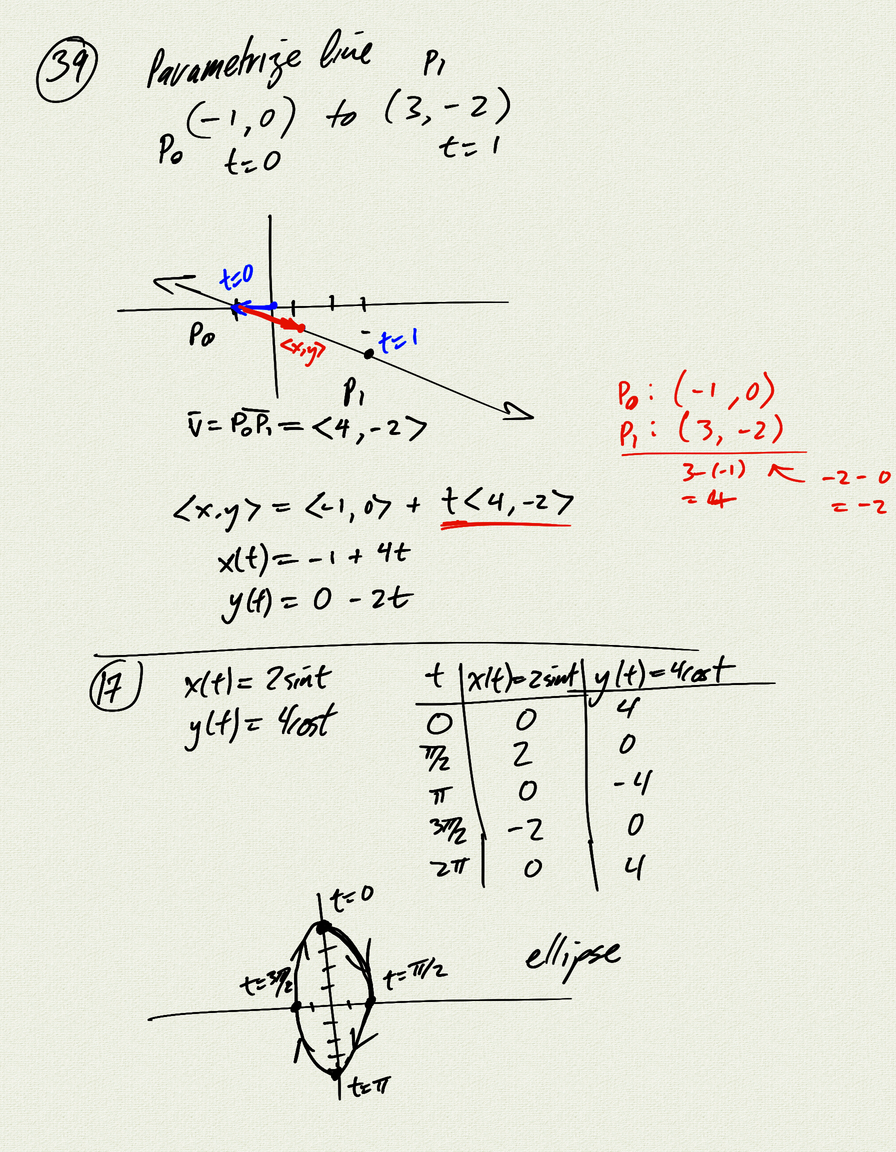 39 Parametrize line
P₁
(-1, 0) to (3, -2)
P₀ t=0 t=1
t=0
P₀
<x,y>
t=1
P₁
v̄ = P̅₀P̅₁ = <4, -2>
P₀: (-1, 0)
P₁: (3, -2)
3-(-1) -2-0
= 4 = -2
<x,y> = <-1, 0> + t<4, -2>
x(t) = -1 + 4t
y(t) = 0 - 2t
17 x(t) = 2sint
y(t) = 4cost
t x(t)=2sint y(t)=4cost
0 0 4
π/2 2 0
π 0 -4
3π/2 -2 0
2π 0 4
t=0
t=3π/2 t=π/2
t=π
ellipse